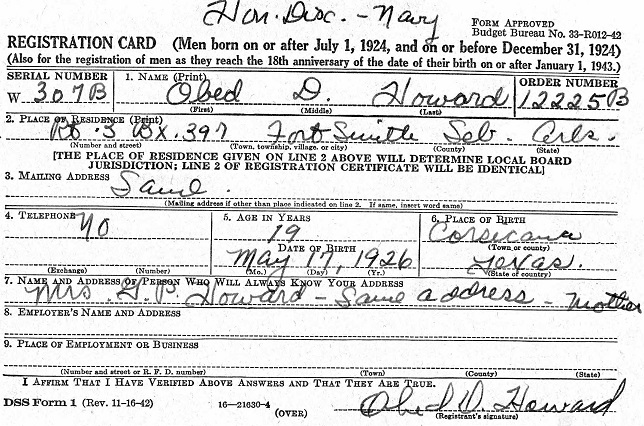 Hon. Disc. - Navy
FORM APPROVED
Budget Bureau No. 33-R012-42
REGISTRATION CARD (Men born on or after July 1, 1924, and on or before December 31, 1924)
(Also for the registration of men as they reach the 18th anniversary of the date of their birth on or after January 1, 1943.)
SERIAL NUMBER 1. NAME (Print) ORDER NUMBER
W 307B Obed D. Howard 12225B
(First) (Middle) (Last)
2. PLACE OF RESIDENCE (Print)
Rt. 5 Bx. 397 Fort Smith Seb. Ark.
(Number and street) (Town, township, village, or city) (County) (State)
[THE PLACE OF RESIDENCE GIVEN ON LINE 2 ABOVE WILL DETERMINE LOCAL BOARD
JURISDICTION; LINE 2 OF REGISTRATION CERTIFICATE WILL BE IDENTICAL]
3. MAILING ADDRESS
Same.
(Mailing address if other than place indicated on line 2. If same, insert word same)
4. TELEPHONE 5. AGE IN YEARS 6. PLACE OF BIRTH
no 19 Corsicana
(Town or county)
DATE OF BIRTH
May 17, 1926 Texas.
(Exchange) (Number) (Mo.) (Day) (Yr.) (State or country)
7. NAME AND ADDRESS OF PERSON WHO WILL ALWAYS KNOW YOUR ADDRESS
Mrs. G. P. Howard - Same address - Mother
8. EMPLOYER'S NAME AND ADDRESS
9. PLACE OF EMPLOYMENT OR BUSINESS
(Number and street or R. F. D. number) (Town) (County) (State)
I AFFIRM THAT I HAVE VERIFIED ABOVE ANSWERS AND THAT THEY ARE TRUE.
DSS Form 1 (Rev. 11-16-42) 16—21630-4 (OVER) Obed D Howard
(Registrant's signature)